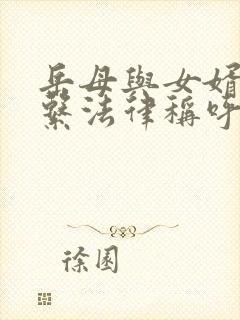 岳母與女婿
繫法律稱呼
徐園